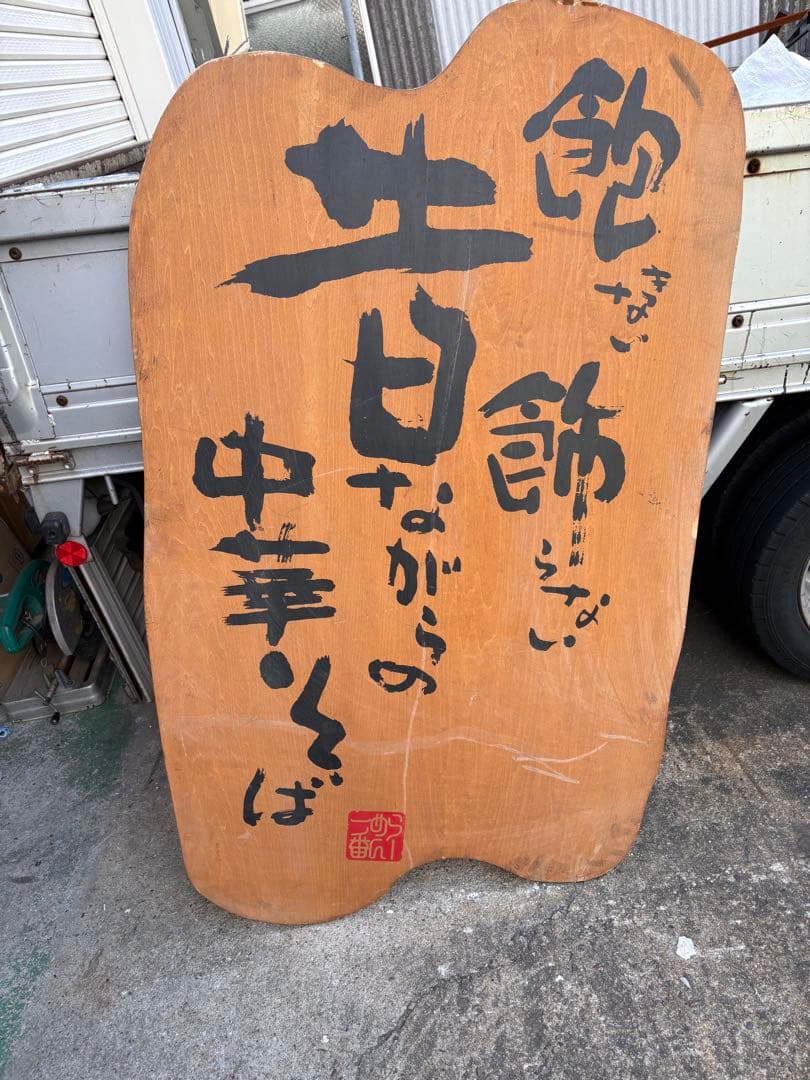 飽きない
飾らない
昔ながらの
中華そば
らーめん一番